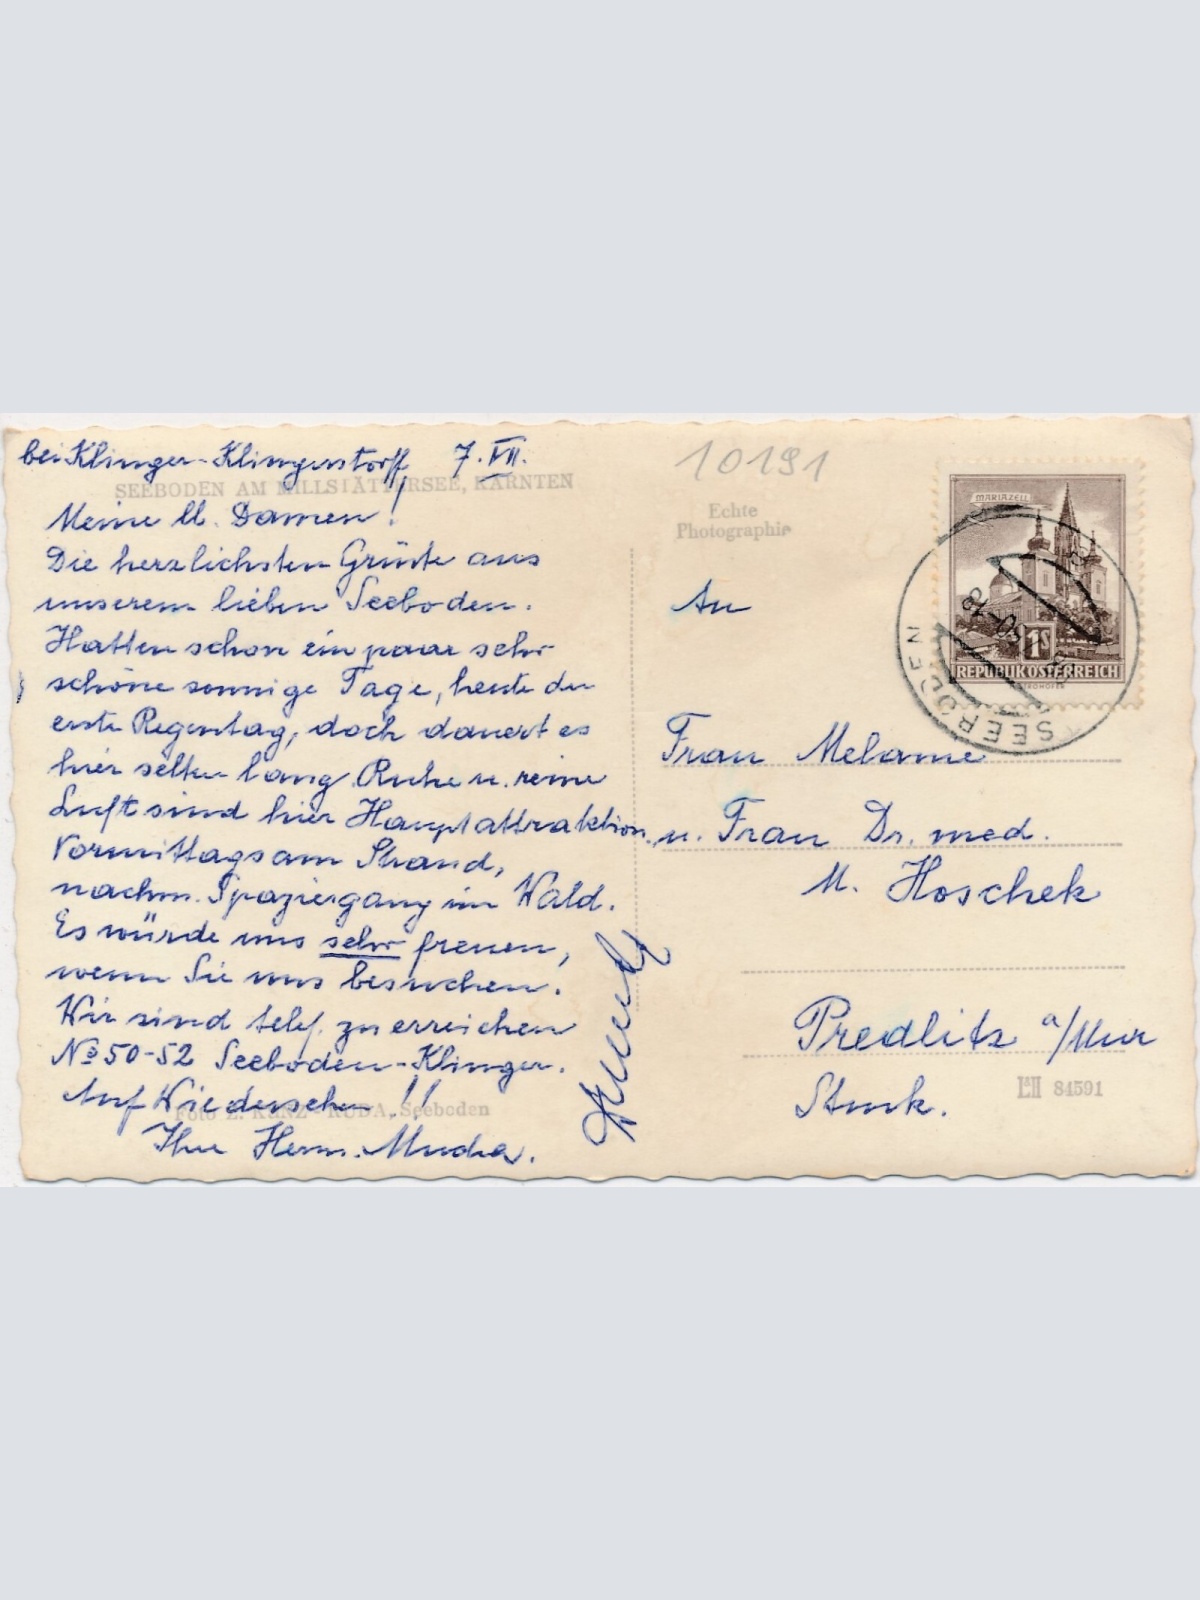 bei Klinger-Klingerstorff 7. VII.
SEEBODEN AM MILLSTÄTTERSEE, KÄRNTEN
Meine ll. Damen!
Die herzlichsten Grüße aus
unserem lieben Seeboden.
Hatten schon ein paar sehr
schöne sonnige Tage, heute der
erste Regentag, doch dauert es
hier selten lang. Ruhe u. reine
Luft sind hier Hauptattraktion.
Vormittags am Strand,
nachm. Spaziergang im Wald.
Es würde uns sehr freuen,
wenn Sie uns besuchen.
Wir sind telef. zu erreichen
No 50-52 Seeboden-Klinger.
Auf Wiedersehen!!
Foto L. KUNZ - RUDA, Seeboden
Ihre Herm.
10191
Echte
Photographie
MARIAZELL
1S
REPUBLIK ÖSTERREICH
SEEBODEN
An
Frau Melanie
u. Frau Dr. med.
M. Hoschek
Predlitz a/Mur
Stmk.
84591